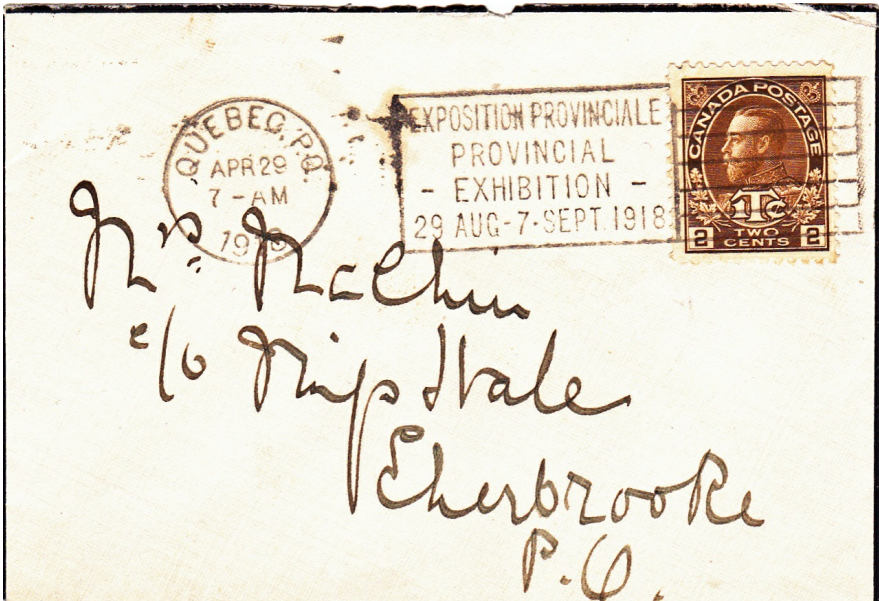 QUEBEC, P.Q.
APR 29
7 - AM
EXPOSITION PROVINCIALE
PROVINCIAL
- EXHIBITION -
29 AUG - 7 - SEPT. 1918
CANADA POSTAGE
1Tc
2 TWO CENTS 2
Mrs. MacChin
c/o Miss Hale
Sherbrooke
P.Q.